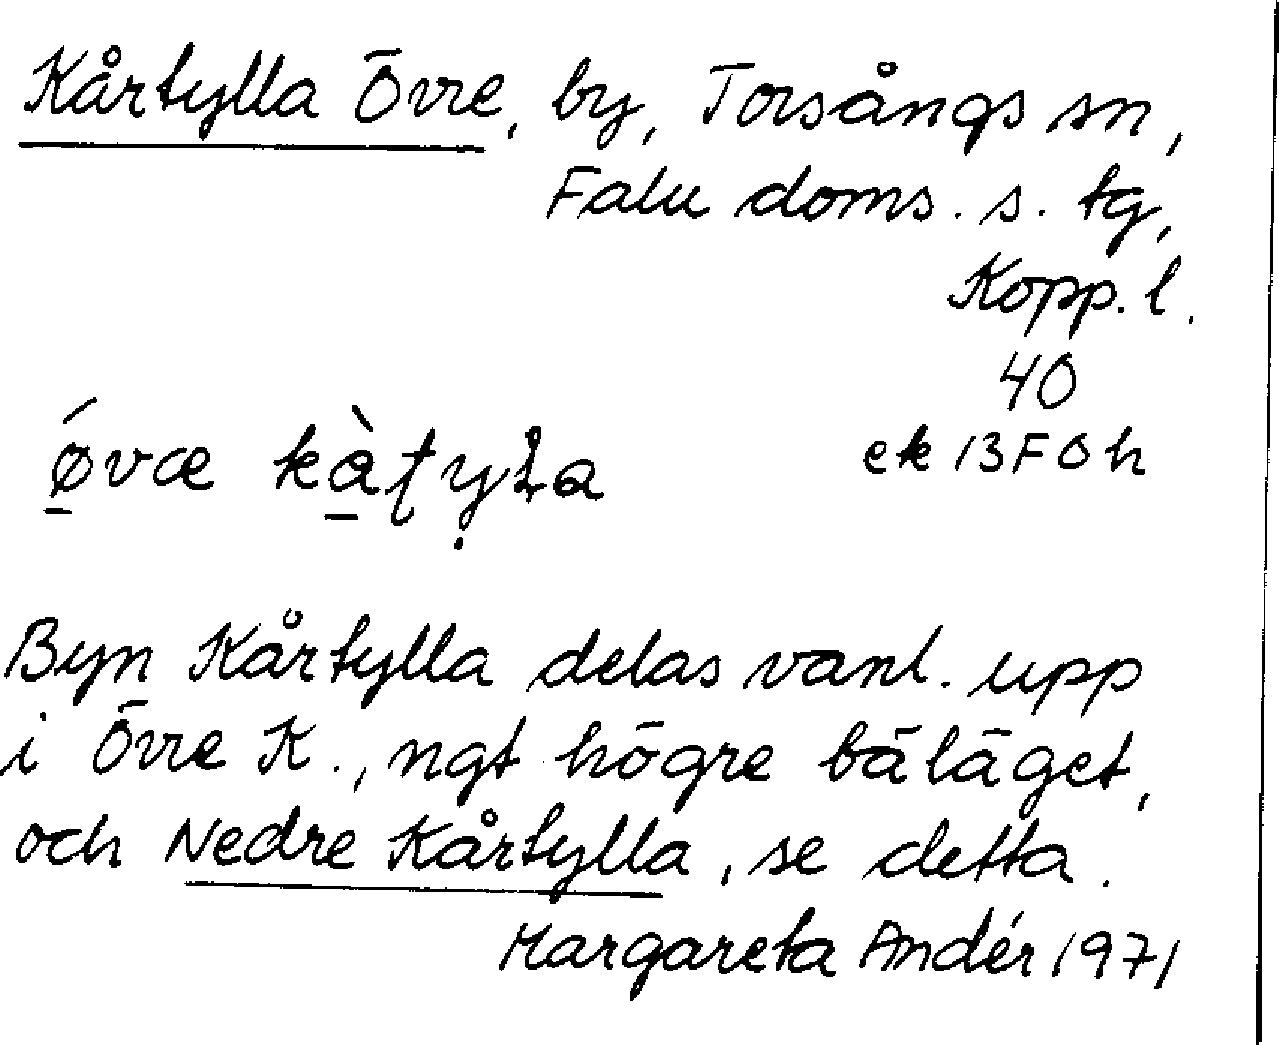 Kårtylla Övre, by, Torsångs sn,
Falu doms. s. tg,
Kopp. l.
40
ek 13F0h
Byn Kårtylla delas vanl. upp
i Övre K., ngt högre båläget,
och Nedre Kårtylla, se detta.
Margareta Andér 1971